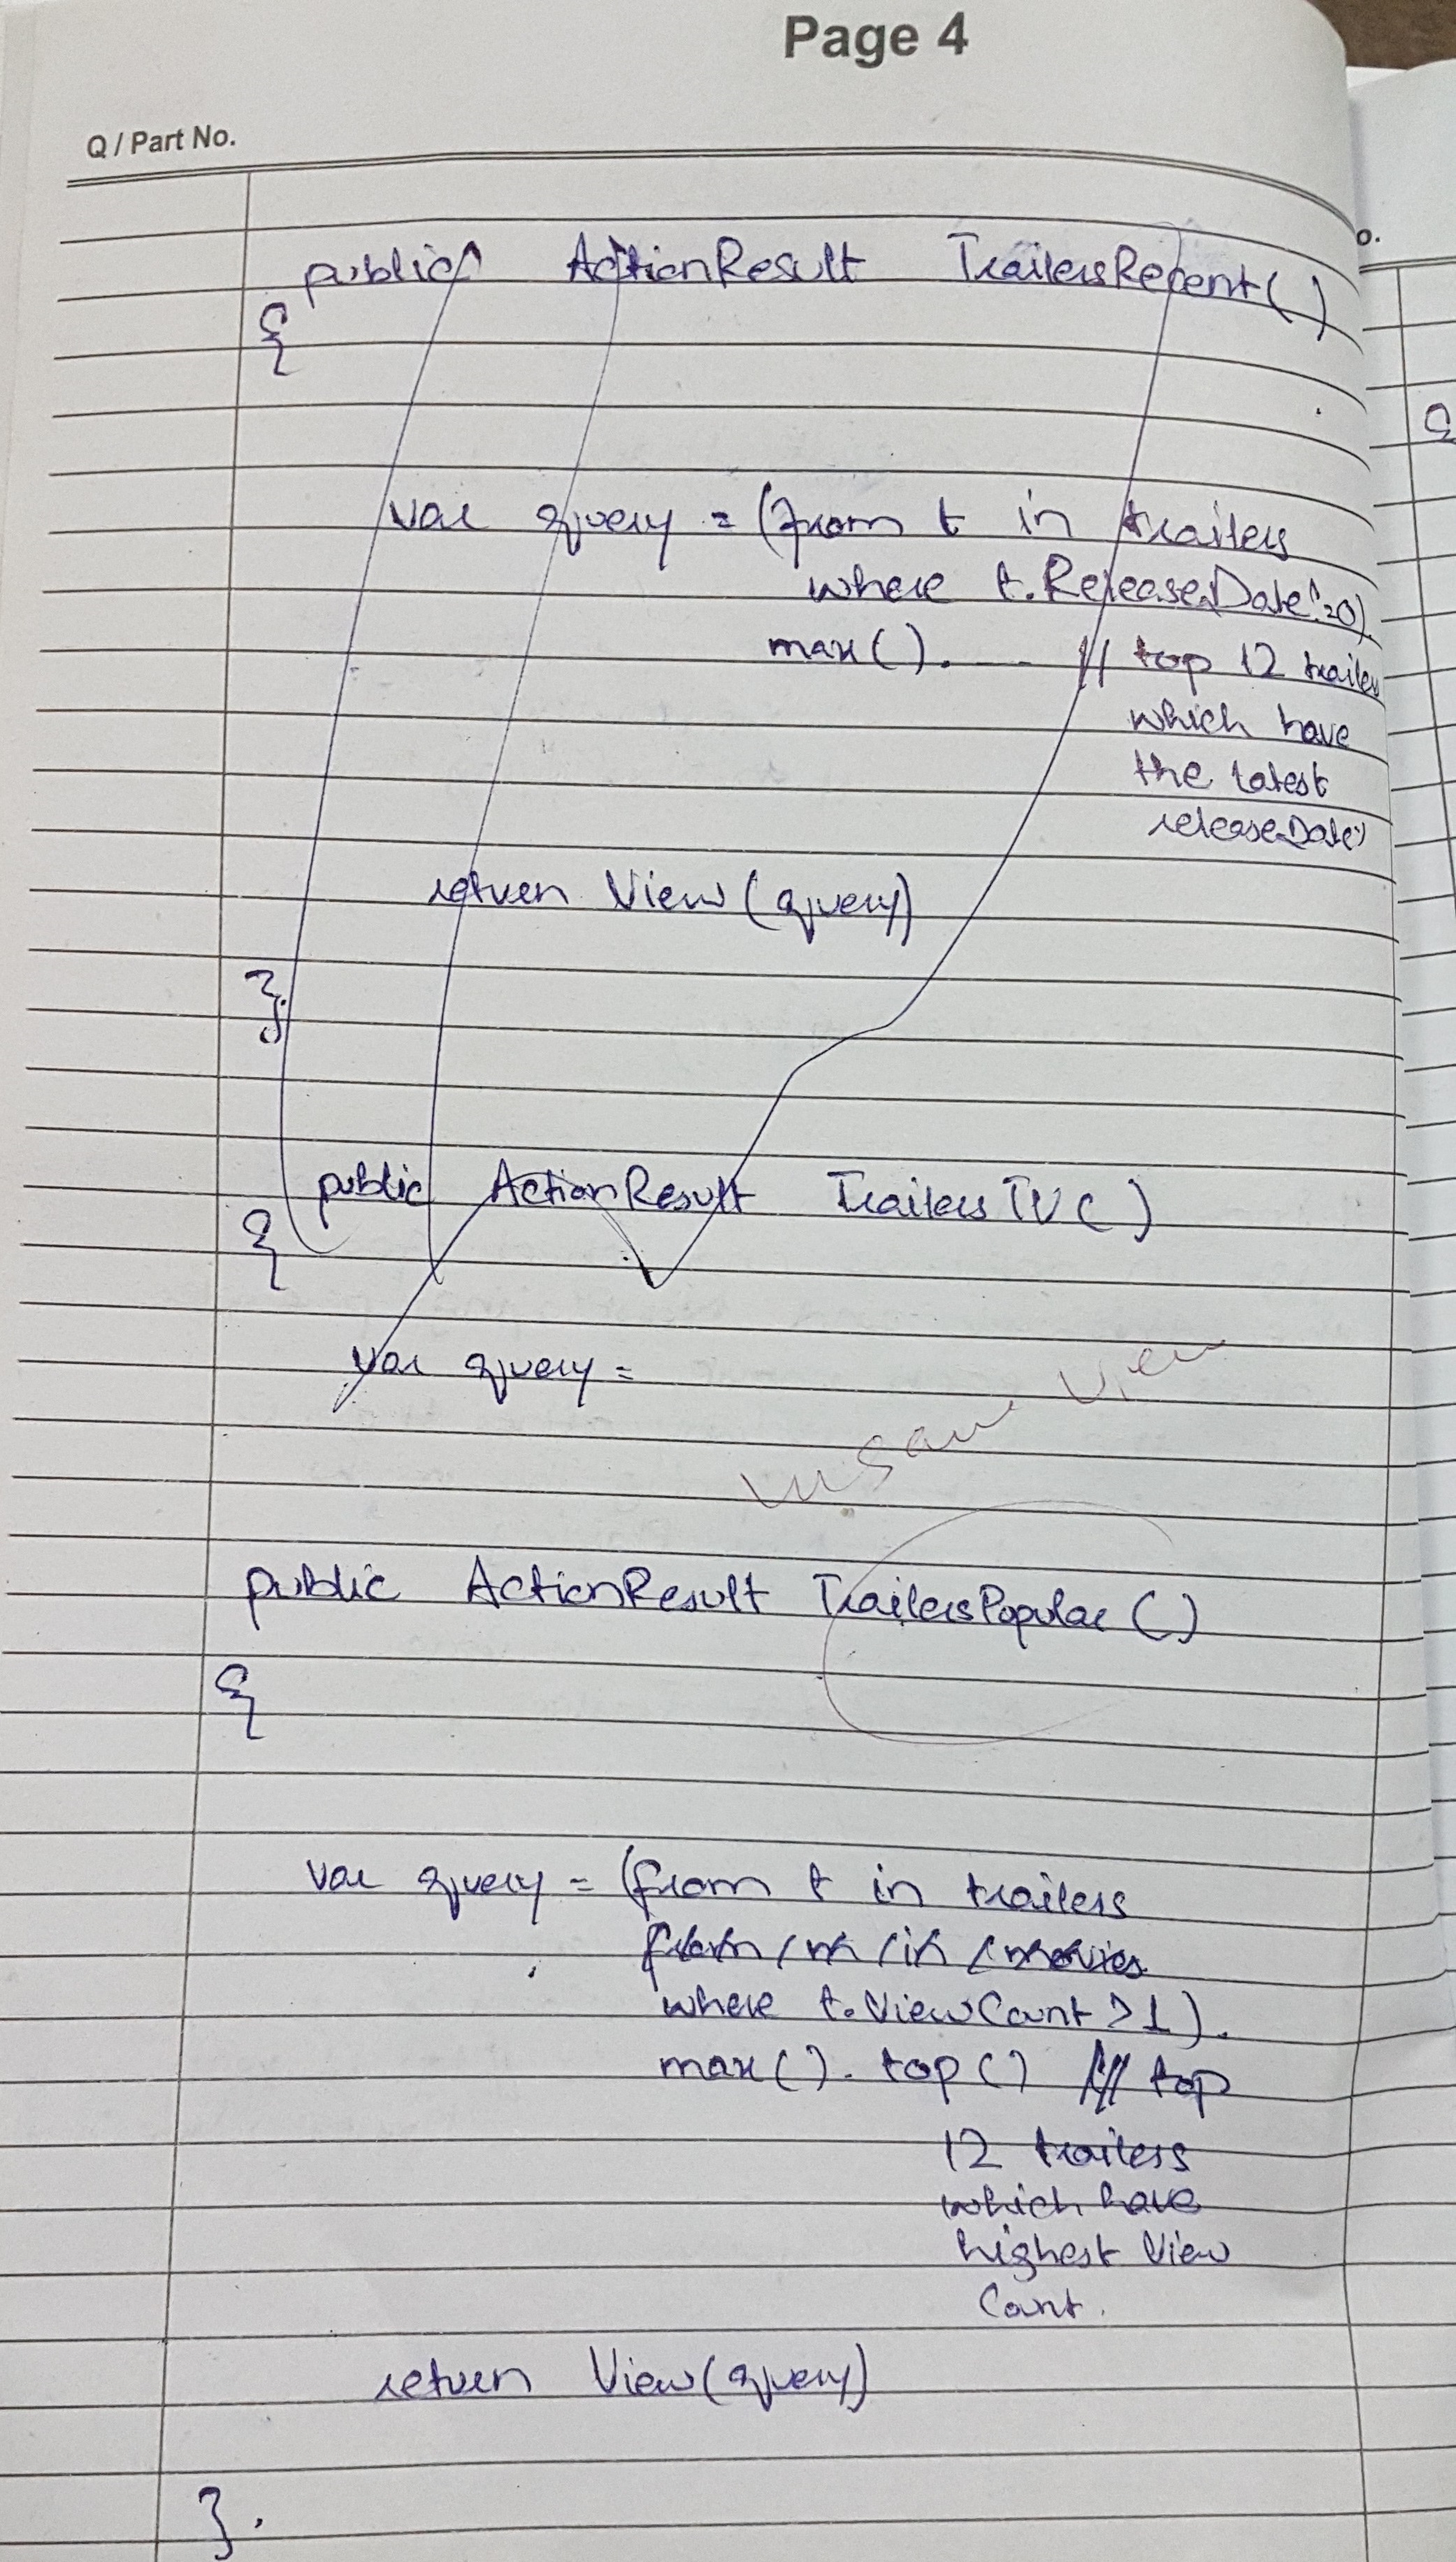 Page 4
Q / Part No.
o.
public ActionResult TrailersRecent()
{
var query = (from t in trailers
where t.ReleaseDate!=0).
max(). // top 12 trailer
which have
the latest
releaseDate
return View(query)
};
public ActionResult TrailersTV()
{
var query =
in same view
public ActionResult TrailersPopular()
{
var query = (from t in trailers
from m in movies
where t.ViewCount > 1).
max(). top() // top
12 trailers
which have
highest View
Count.
return View(query)
}.